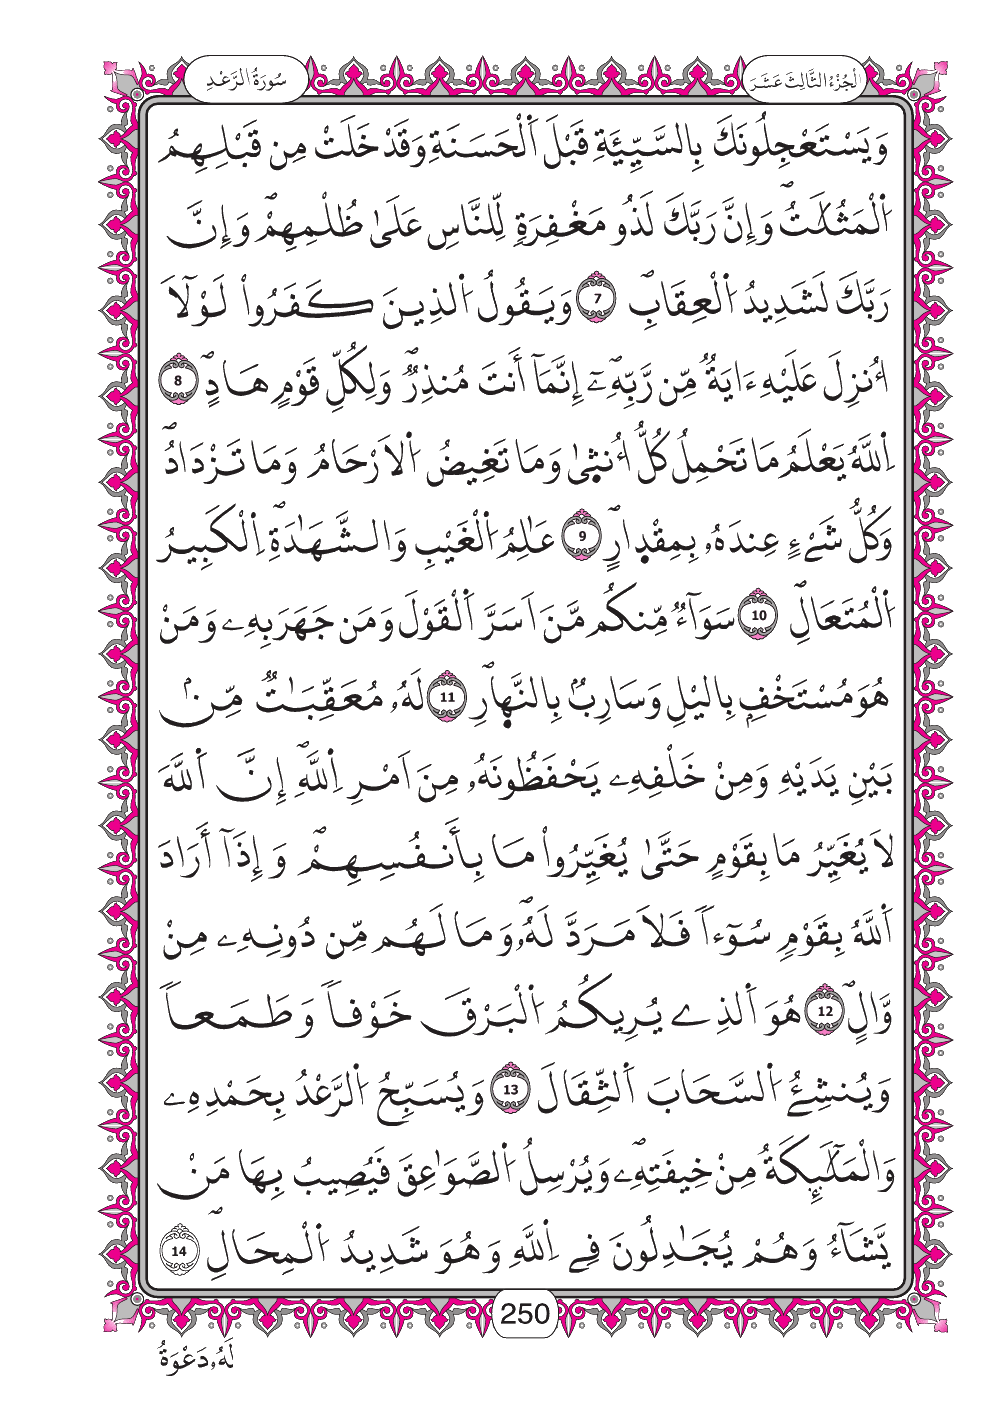 الْجُزْءُ الثَّالِثَ عَشَرَ
سُورَةُ الرَّعْدِ
وَيَسْتَعْجِلُونَكَ بِالسَّيِّئَةِ قَبْلَ اَلْحَسَنَةِ وَقَدْ خَلَتْ مِن قَبْلِهِمُ
اُلْمَثُلَٰتُۖ وَإِنَّ رَبَّكَ لَذُو مَغْفِرَةٖ لِّلنَّاسِ عَلَىٰ ظُلْمِهِمْۖ وَإِنَّ
رَبَّكَ لَشَدِيدُ اُلْعِقَابِۖ 7 وَيَقُولُ اُلذِينَ كَفَرُواْ لَوْلَآ
أُنزِلَ عَلَيْهِ ءَايَةٞ مِّن رَّبِّهِۦٓۖ إِنَّمَآ أَنتَ مُنذِرٞۖ وَلِكُلِّ قَوْمٍ هَادٍۖ 8
اِ۬للَّهُ يَعْلَمُ مَا تَحْمِلُ كُلُّ أُنث۪ىٰ وَمَا تَغِيضُ اُ۬لَارْحَامُ وَمَا تَزْدَادُۖ
وَكُلُّ شَےْءٍ عِندَهُۥ بِمِقْد۪ارٍۖ 9 عَٰلِمُ اُ۬لْغَيْبِ وَالشَّهَٰدَةِۖ اِ۬لْكَبِيرُ
اُ۬لْمُتَعَالِۖ 10 سَوَآءٞ مِّنكُم مَّنَ اَسَرَّ اَ۬لْقَوْلَ وَمَن جَهَرَ بِهِۦ وَمَنْ
هُوَ مُسْتَخْفِۢ بِاليْلِ وَسَارِبُۢ بِالنَّه۪ارِۖ 11 لَهُۥ مُعَقِّبَٰتٞ مِّنۢ
بَيْنِ يَدَيْهِ وَمِنْ خَلْفِهِۦ يَحْفَظُونَهُۥ مِنَ اَمْرِ اِ۬للَّهِۖ إِنَّ اَ۬للَّهَ
لَا يُغَيِّرُ مَا بِقَوْمٍ حَتَّىٰ يُغَيِّرُواْ مَا بِأَنفُسِهِمْۖ وَإِذَآ أَرَادَ
اَ۬للَّهُ بِقَوْمٖ سُوٓءاٗ فَلَا مَرَدَّ لَهُۥۖ وَمَا لَهُم مِّن دُونِهِۦ مِنْ
وَّالٍۖ 12 هُوَ اَ۬لذِے يُرِيكُمُ اُ۬لْبَرْقَ خَوْفاٗ وَطَمَعاٗ
وَيُنشِئُ اُ۬لسَّحَابَ اَ۬لثِّقَالَ 13 وَيُسَبِّحُ اُ۬لرَّعْدُ بِحَمْدِهِۦ
وَالْمَلَٰٓئِكَةُ مِنْ خِيفَتِهِۦۖ وَيُرْسِلُ اُ۬لصَّوَٰعِقَ فَيُصِيبُ بِهَا مَنْ
يَّشَآءُ وَهُمْ يُجَٰدِلُونَ فِے اِ۬للَّهِ وَهُوَ شَدِيدُ اُ۬لْمِحَالِۖ 14
250
لَهُۥ دَعْوَةُ